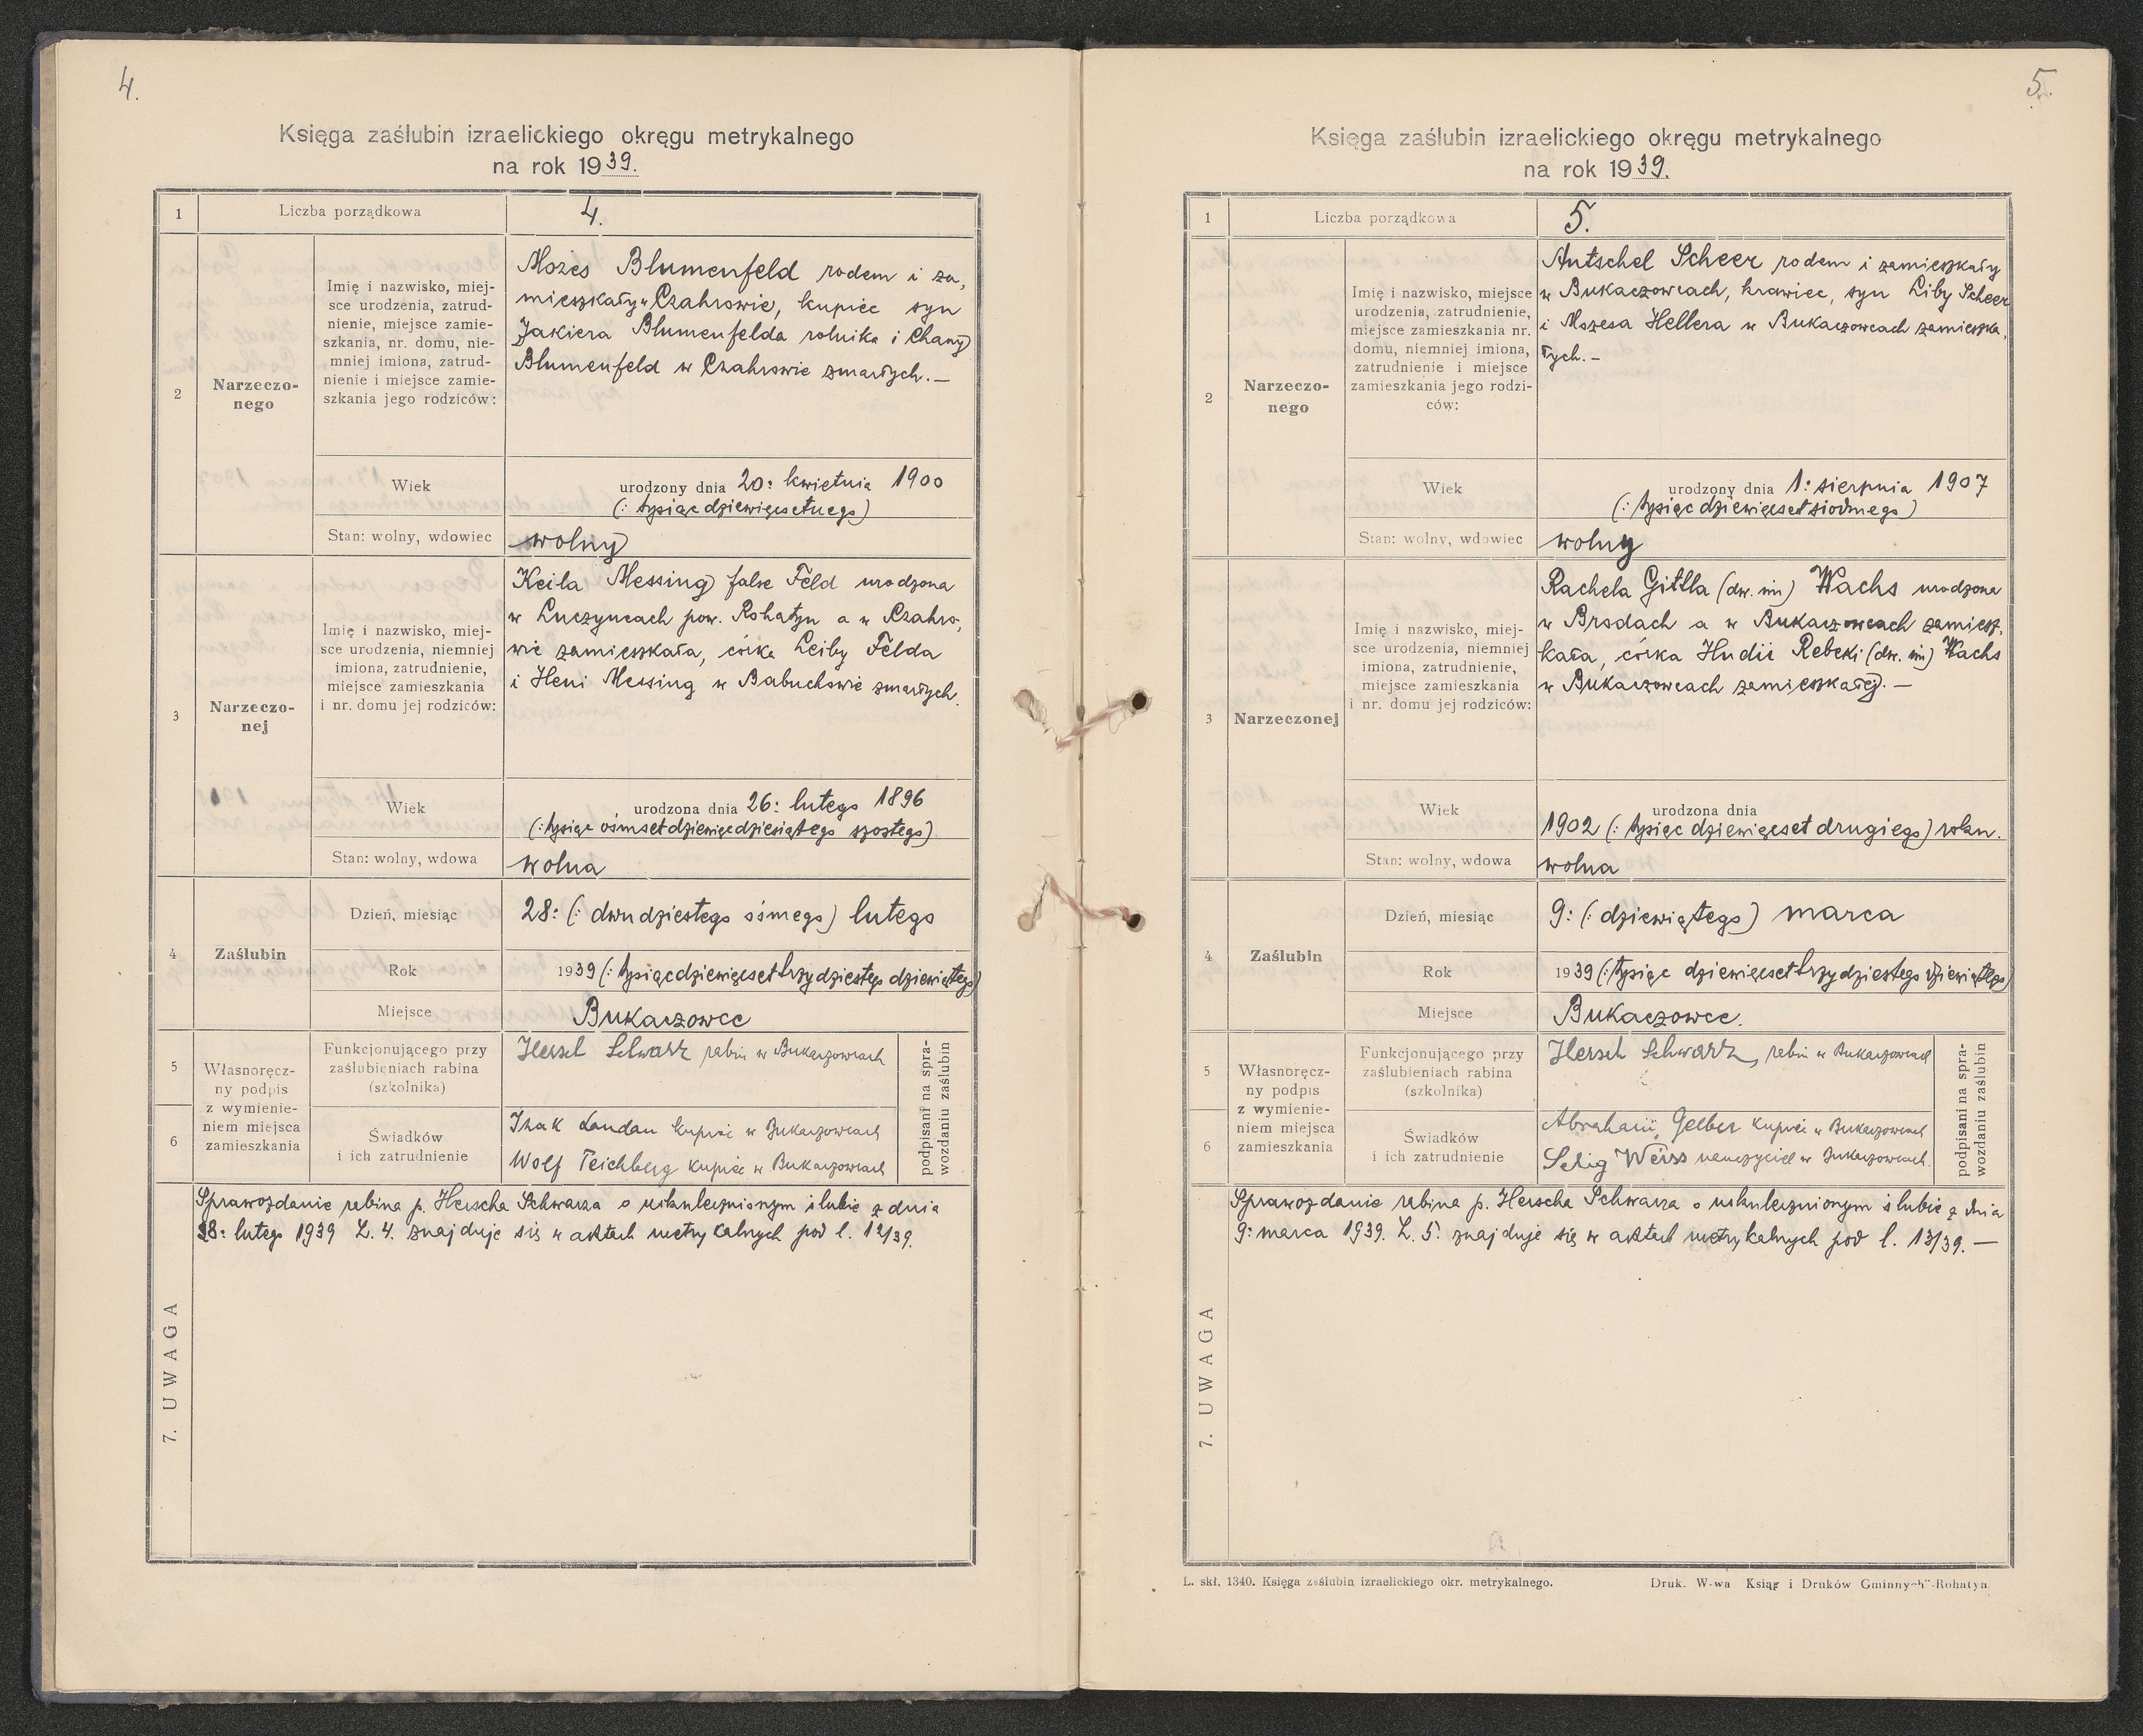 4.
Księga zaślubin izraelickiego okręgu metrykalnego
na rok 1939.
1
Liczba porządkowa
4.
2
Narzeczo-
nego
Imię i nazwisko, miej-
sce urodzenia, zatrud-
nienie, miejsce zamie-
szkania, nr. domu, nie-
mniej imiona, zatrud-
nienie i miejsce zamie-
szkania jego rodziców:
Mozes Blumenfeld rodem i za,
mieszkały w Czahrowie, kupiec syn
Jakiera Blumenfelda rolnika i Chany
Blumenfeld w Czahrowie zmarłych. —
Wiek
urodzony dnia 20: kwietnia 1900
(: tysiąc dziewięćsetnego)
Stan: wolny, wdowiec
wolny
3
Narzeczo-
nej
Imię i nazwisko, miej-
sce urodzenia, niemniej
imiona, zatrudnienie,
miejsce zamieszkania
i nr. domu jej rodziców:
Keila Messing false Feld urodzona
w Łuczyncach pow. Rohatyn a w Czahro,
wie zamieszkała, córka Leiby Felda
i Heni Messing w Babuchowie zmarłych.
Wiek
urodzona dnia 26: lutego 1896
(: tysiąc ośmset dziewięćdziesiątego szóstego)
Stan: wolny, wdowa
wolna
4
Zaślubin
Dzień, miesiąc
28: (: dwudziestego ósmego) lutego
Rok
1939 (: tysiąc dziewięćset trzydziestego dziewiątego)
Miejsce
Bukaczowce
5
6
Własnoręcz-
ny podpis
z wymienie-
niem miejsca
zamieszkania
Funkcjonującego przy
zaślubieniach rabina
(szkolnika)
Hersch Schwarz rabin w Bukaczowcach
Świadków
i ich zatrudnienie
Izak Landau kupiec w Bukaczowcach
Wolf Teichberg kupiec w Bukaczowcach
podpisani na spra-
wozdaniu zaślubin
7. UWAGA
Sprawozdanie rabina p. Herscha Schwarza o uskutecznionym ślubie z dnia
28: lutego 1939 L. 4. znajduje się w aktach metrykalnych pod l. 12/39.
5.
Księga zaślubin izraelickiego okręgu metrykalnego
na rok 1939.
1
Liczba porządkowa
5.
2
Narzeczo-
nego
Imię i nazwisko, miejsce
urodzenia, zatrudnienie,
miejsce zamieszkania nr.
domu, niemniej imiona,
zatrudnienie i miejsce
zamieszkania jego rodzi-
ców:
Antschel Scheer rodem i zamieszkały
w Bukaczowcach, krawiec, syn Liby Scheer
i Mozesa Hellera w Bukaczowcach zamieszka,
łych. —
Wiek
urodzony dnia 1: sierpnia 1907
(: tysiąc dziewięćset siódmego)
Stan: wolny, wdowiec
wolny
3
Narzeczonej
Imię i nazwisko, miej-
sce urodzenia, niemniej
imiona, zatrudnienie,
miejsce zamieszkania
i nr. domu jej rodziców:
Rachela Gitla (dw. im) Wachs urodzona
w Brodach a w Bukaczowcach zamiesz,
kała, córka Hudii Rebeki (dw. im) Wachs
w Bukaczowcach zamieszkałej. —
Wiek
urodzona dnia
1902 (: tysiąc dziewięćset drugiego) roku.
Stan: wolny, wdowa
wolna
4
Zaślubin
Dzień, miesiąc
9: (: dziewiątego) marca
Rok
1939 (: tysiąc dziewięćset trzydziestego dziewiątego)
Miejsce
Bukaczowce.
5
6
Własnoręcz-
ny podpis
z wymienie-
niem miejsca
zamieszkania
Funkcjonującego przy
zaślubieniach rabina
(szkolnika)
Hersch Schwarz, rabin w Bukaczowcach
Świadków
i ich zatrudnienie
Abraham Gelber kupiec w Bukaczowcach
Selig Weiss nauczyciel w Bukaczowcach.
podpisani na spra-
wozdaniu zaślubin
7. UWAGA
Sprawozdanie rabina p. Herscha Schwarza o uskutecznionym ślubie z dnia
9: marca 1939. L. 5. znajduje się w aktach metrykalnych pod l. 13/39. —
L. skł. 1340. Księga zaślubin izraelickiego okr. metrykalnego.
Druk. W-wa Ksiąg i Druków Gminnych"-Rohatyn.